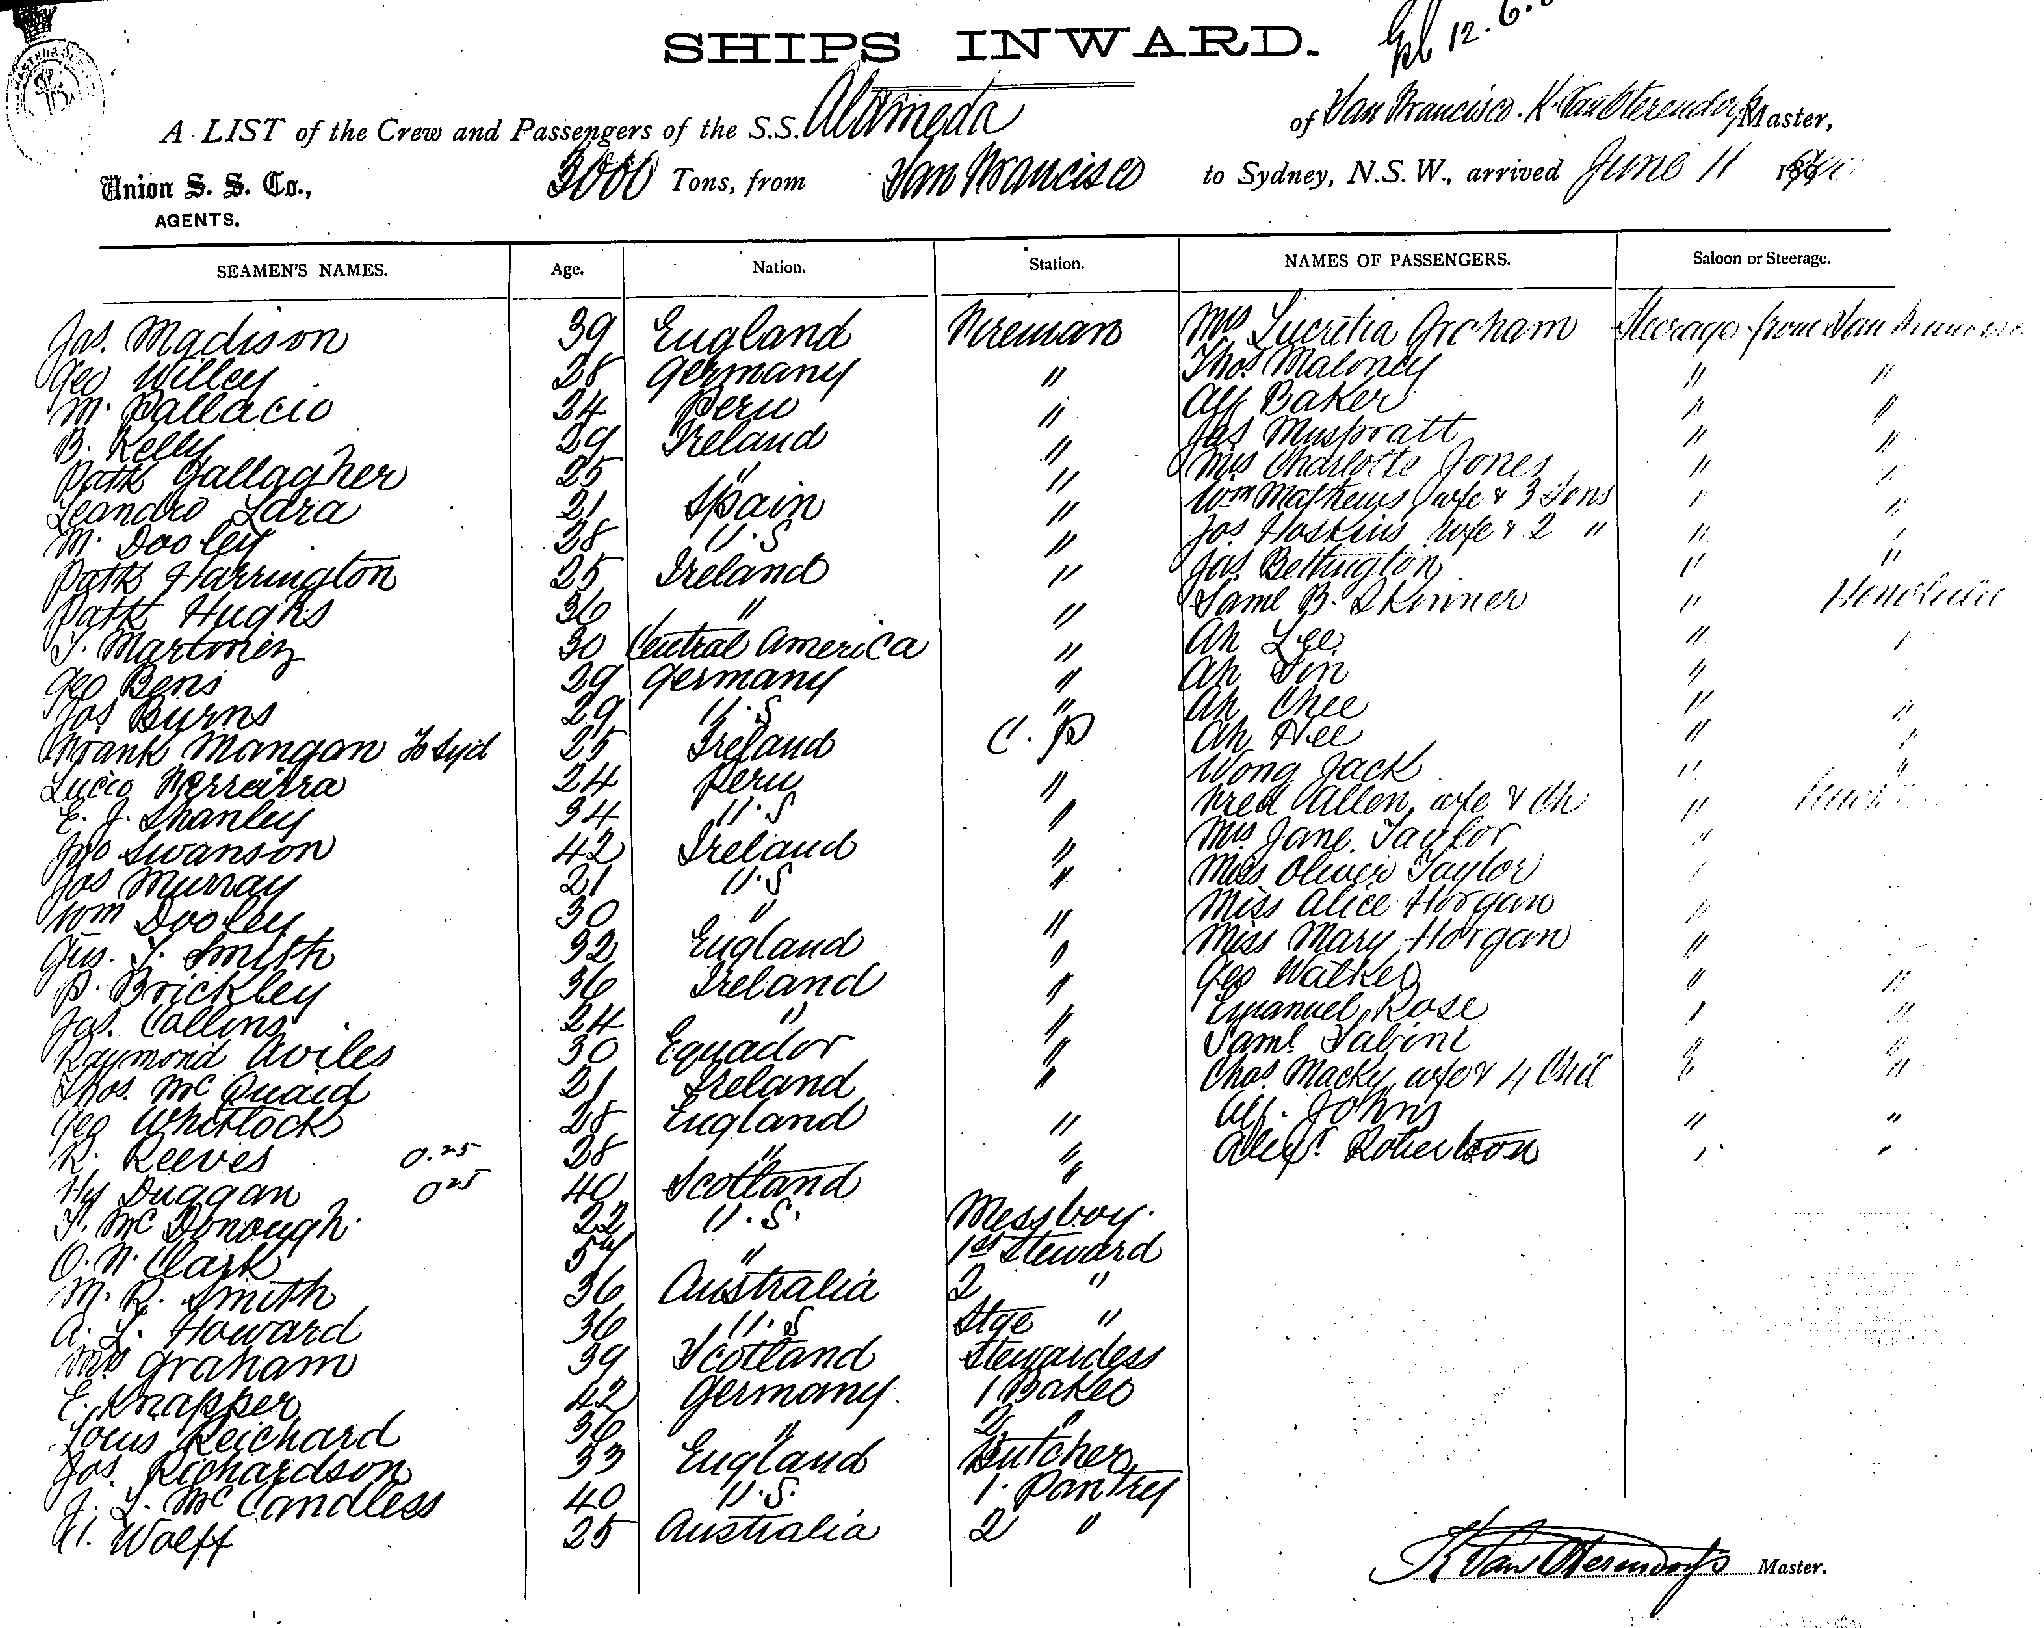 SHIPS INWARD.
12. 6.
A LIST of the Crew and Passengers of the S.S. Alameda of San Francisco. K. Van Oterendorp Master,
Union S. S. Co., 3000 Tons, from San Francisco to Sydney, N.S.W., arrived June 11
AGENTS.
SEAMEN'S NAMES. Age. Nation. Station. NAMES OF PASSENGERS. Saloon or Steerage.
Jas. Madison 39 England Fireman Mrs Lucretia Graham Steerage from San Francisco
Geo Willey 28 Germany " Thos Maloney " "
M. Pallacio 24 Peru " Alf Baker " "
B. Kelly 29 Ireland " Jas Muspratt " "
Patk Gallagher 25 " " Mrs Charlotte Jones " "
Leandro Lara 21 Spain " Wm Mathews wfe & 3 Sons " "
M. Dooley 38 U.S " Jos Hoskins wfe & 2 " " "
Patk Harrington 25 Ireland " Jas. Bettington " "
Patk Hughs 36 " " Saml B. Skinner " Honolulu
T. Martinez 30 Central America " Ah Lee " "
Geo Bens 29 Germany " Ah Sin "
Jos Burns 29 U.S " Ah Chee " "
Frank Mangan To Syd 25 Ireland C. P Ah Hee " "
Lucio Ferrarra 24 Peru " Wong Jack " "
E. J. Shanley 34 U.S " Fred Allen, wfe & Ch "
Jno Swanson 42 Ireland " Mrs Jane Taylor "
Jas Murray 21 U.S " Miss Oliver Taylor "
Wm Dooley 30 " " Miss Alice Horgan "
Gus. T. Smith 32 England " Miss Mary Horgan "
P. Brickley 36 Ireland " Geo Walker " "
Jas. Collins 24 " " Emanuel Rose " "
Raymond Aviles 30 Equador " Saml Sabine " "
Thos. McQuaid 21 Ireland " Chas. Macky wfe & 4 Chil " "
Geo Whitlock 28 England " Alf. Johns " "
R. Reeves 0.25 28 " " Alexr Robertson " "
Hy Duggan 0 25 40 Scotland "
F. McDonough. 22 U.S. Messboy.
O. N. Clark " 1st Steward
M. R. Smith 36 Australia 2 "
A. L. Howard 36 U.S Stge "
Mrs Graham 39 Scotland Stewardess
E. Knapper 42 Germany 1 Baker
Louis Reichard 36 " 2 "
Jos. Richardson 33 England Butcher
J. L. McCandless 40 U.S. 1. Pantry
H. Wolff 25 Australia 2 "
K Van Oterendorp Master.